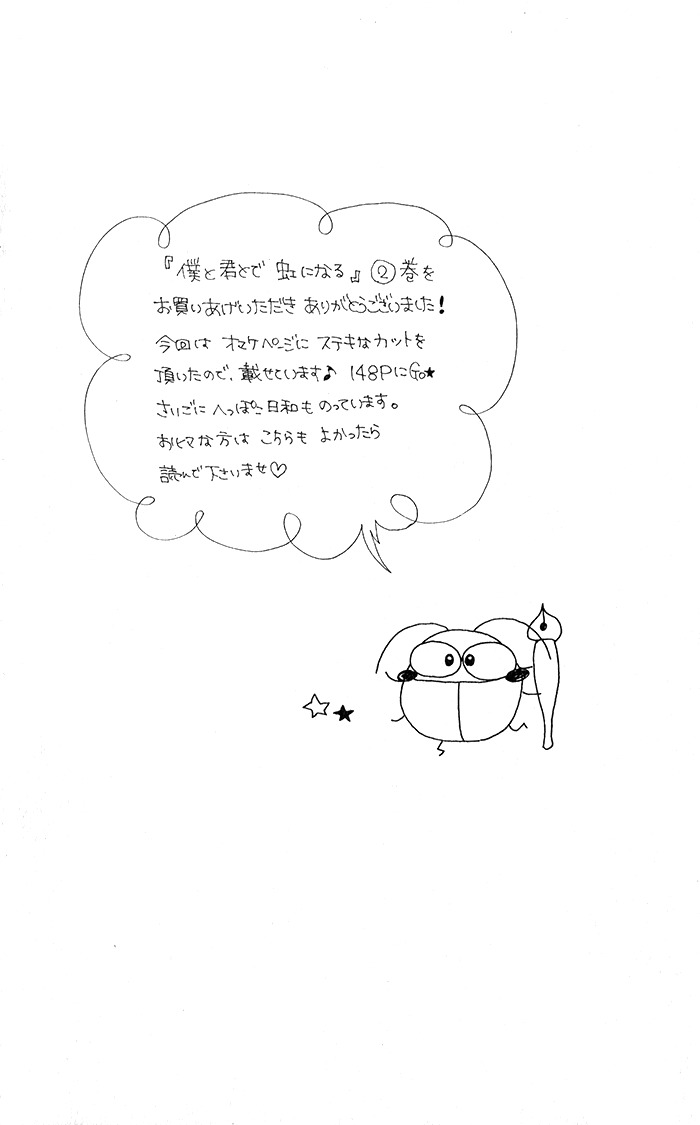 『僕と君とで 虹になる』②巻を
お買いあげいただき ありがとうございました!
今回は オマケページに ステキなカットを
頂いたので、載せています♪ 148PにGo★
さいごに へっぽこ日和も のっています。
おヒマな方は こちらも よかったら
読んで下さいませ♡